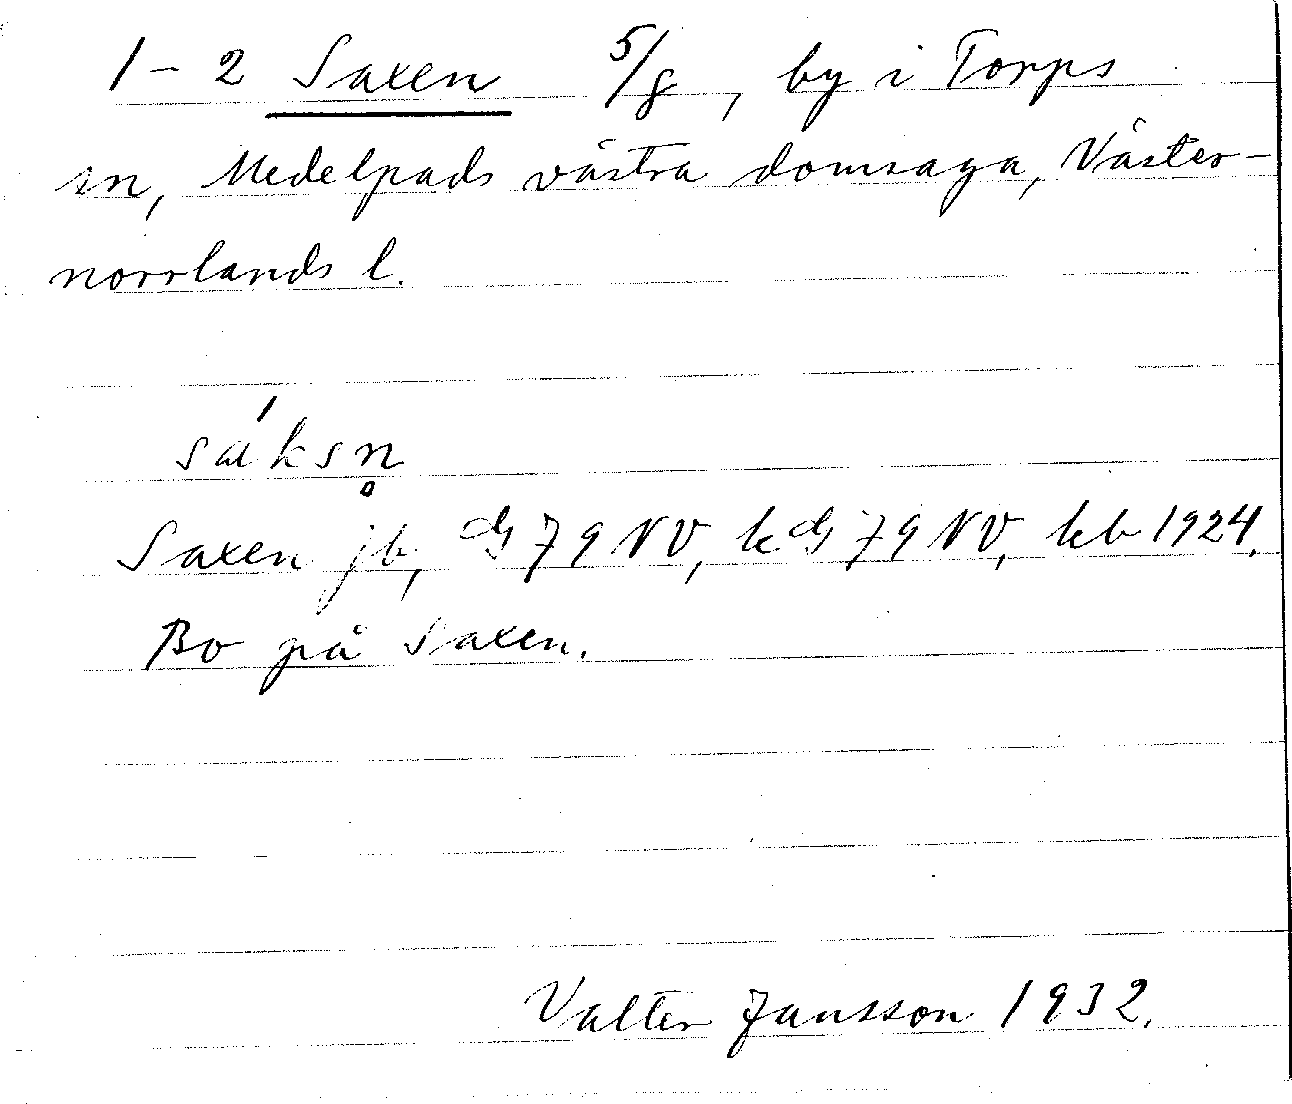 1-2 Saxen 5/8, by i Torps
sn, Medelpads västra domsaga, Väster-
norrlands l.
sáksn̥
Saxen jb, GS 79 NV, kGS 79 NV, kb 1924.
Bo på Saxen.
Valter Jansson 1932.